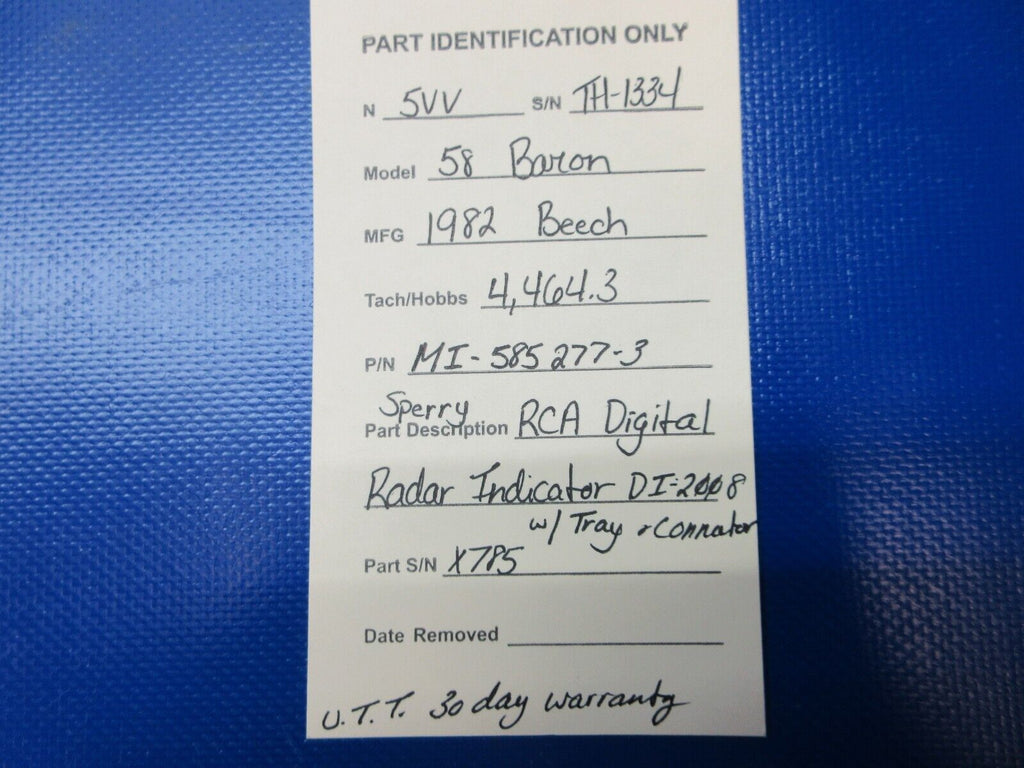 PART IDENTIFICATION ONLY
N 5VV S/N TH-1334
Model 58 Baron
MFG 1982 Beech
Tach/Hobbs 4,464.3
P/N MI-585277-3
Sperry
Part Description RCA Digital
Radar Indicator DI-2008
w/ Tray & Connator
Part S/N X785
Date Removed
U.T.T. 30 day warranty